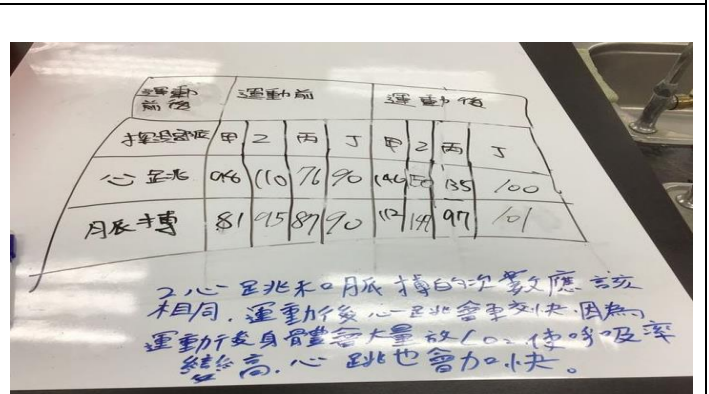 運動前後 運動前 運動後
甲 乙 丙 丁 甲 乙 丙 丁
心跳 110 76 90 135 100
脈搏 81 95 87 90 112 97 101
2.心跳和脈搏的次數應該
相同,運動後心跳會較快,因為
運動後身體會大量放CO₂使呼吸率
變高,心跳也會加快。